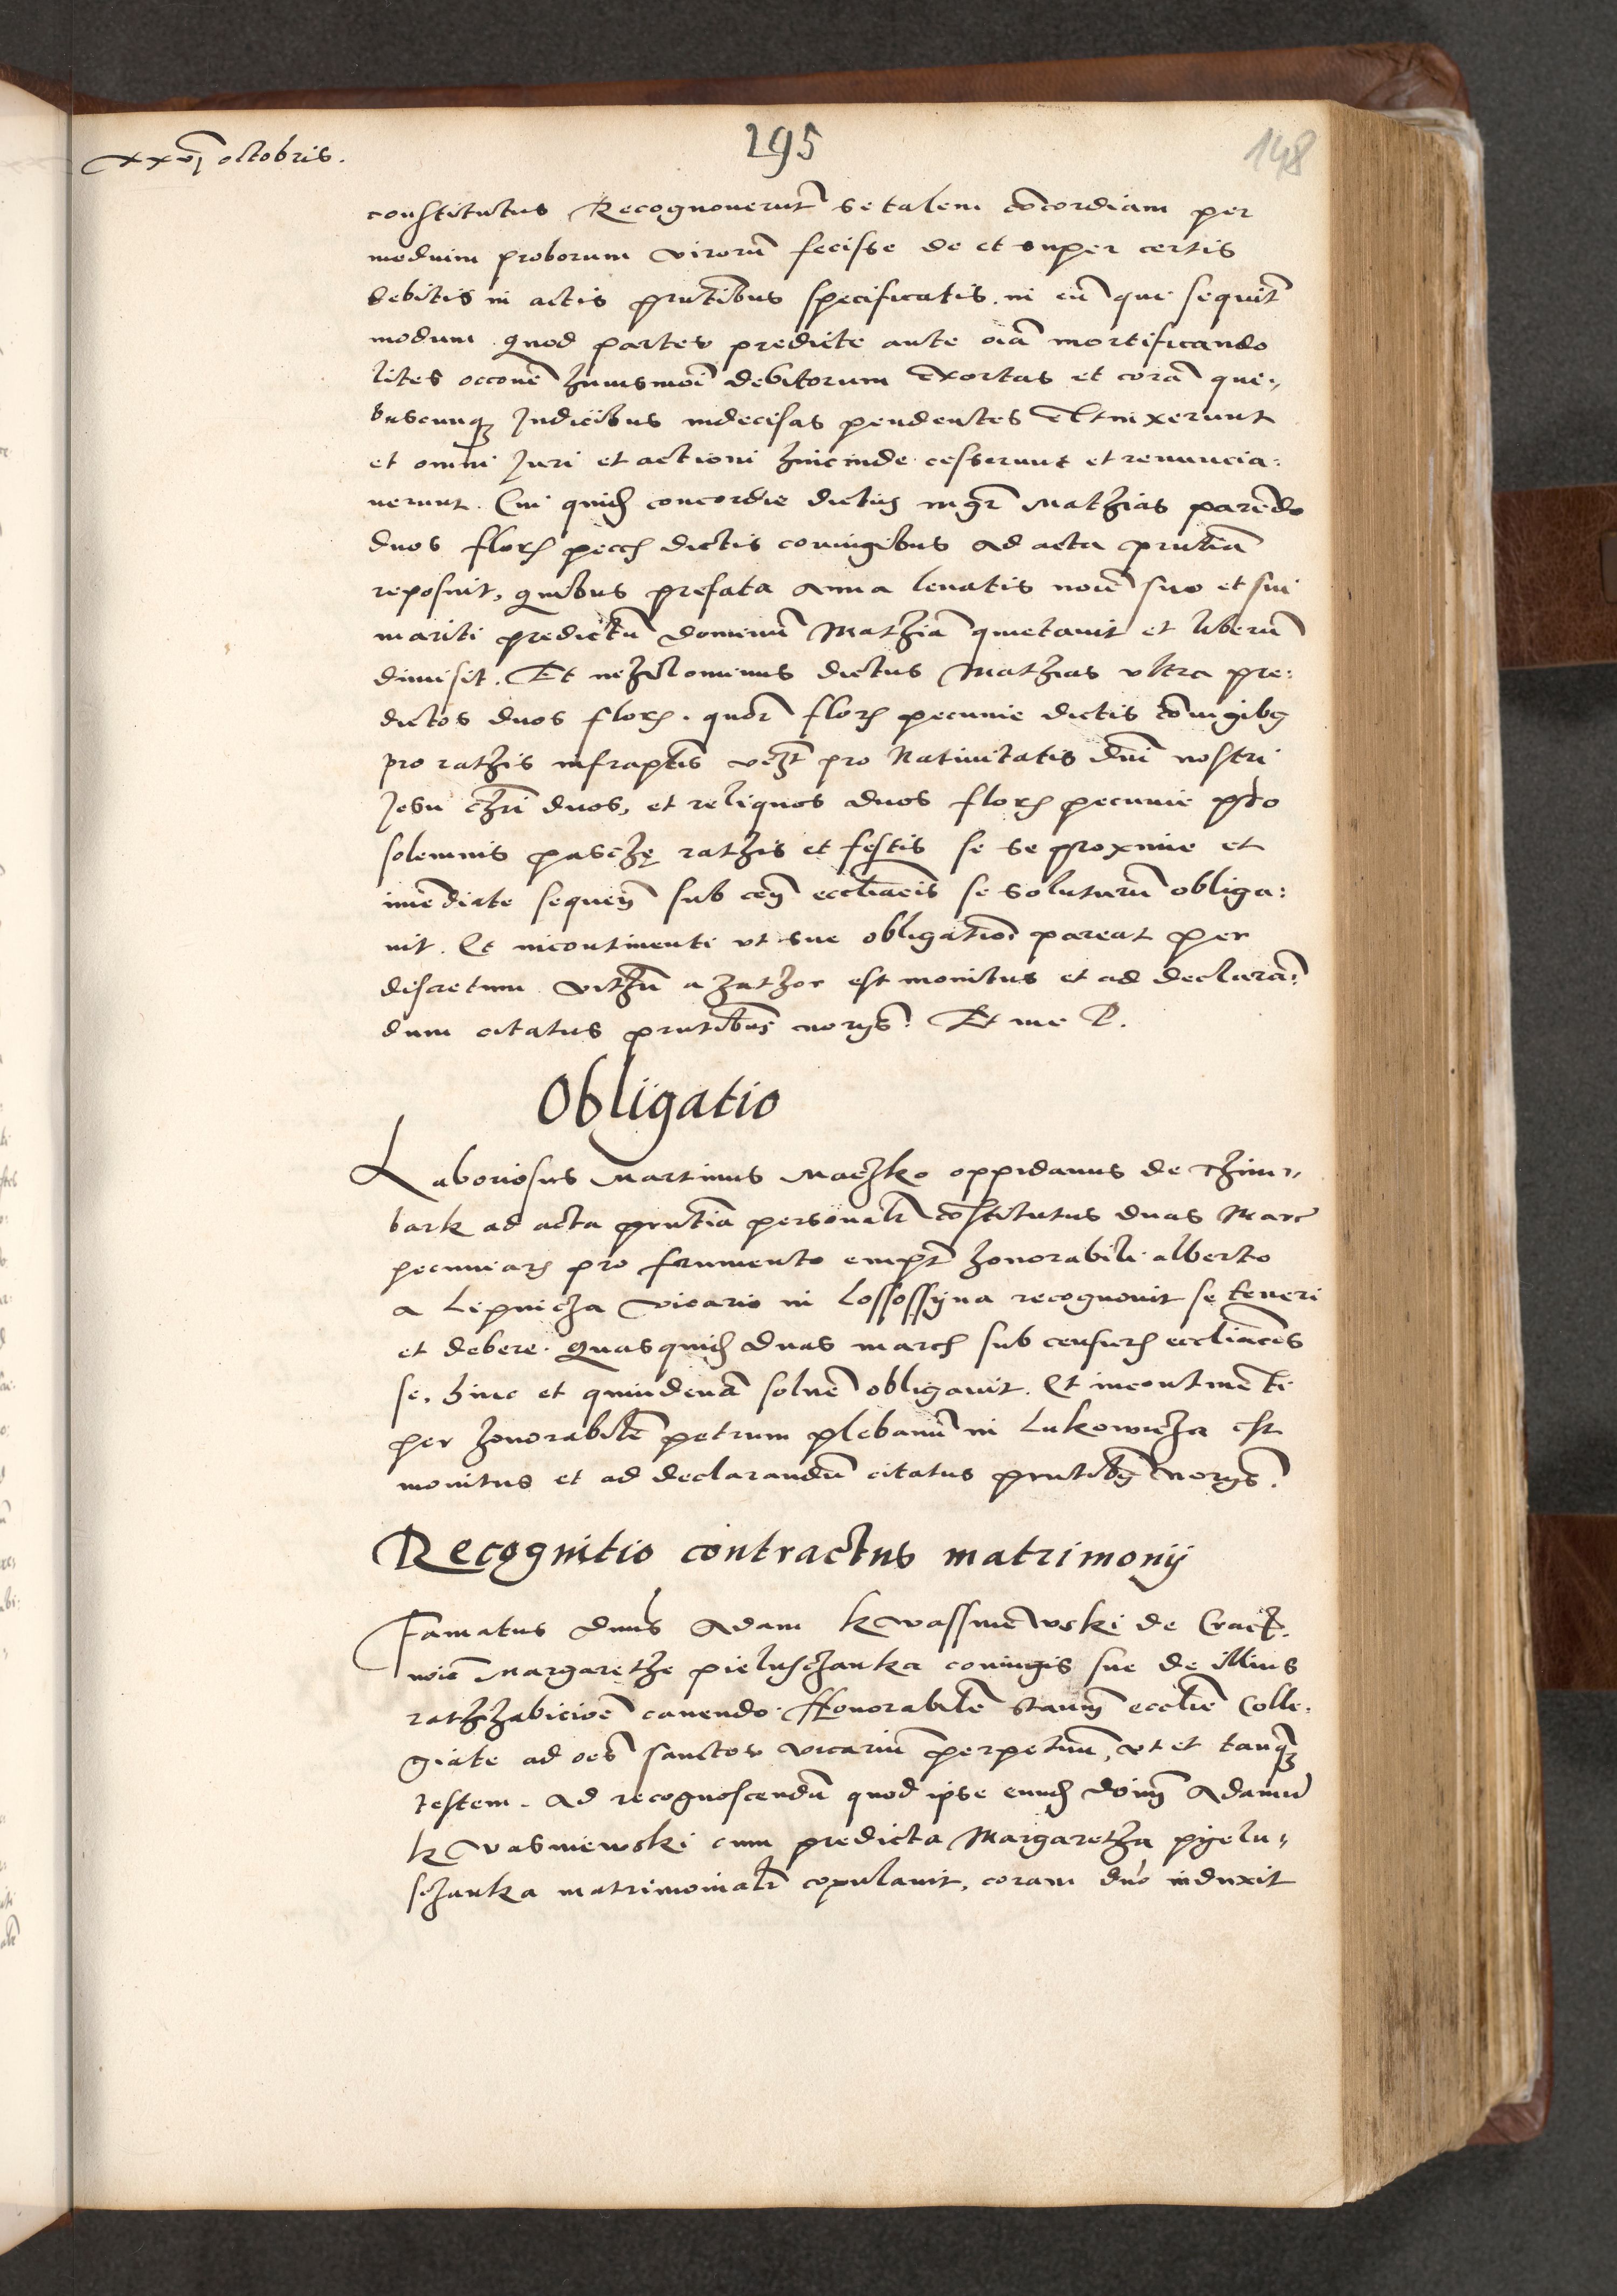 295
148
xxvj octobris.
constitutus Recognouerut̃ se talem cõcordiam per
medium proborum virorũ fecisse de et super certis
debitis in actis pñtibus specificatis. in eũ qui sequit̃
modum. Quod partes predicte ante oĩa mortificando
lites occoñe huiusmoĩ debitorum exortas et corã qui-
buscunq̨ Judicibus indecisas pendentes extinxerunt
et omni Juri et actioni hincinde cesserunt et renuncia:
uerunt. Cui quid̃ concordie dictus mgr̃ Mathias parẽdo
duos florñ pecch̃ dictis coniugibus ad acta pñtia
reposuit, quibus prefata Anna leuatis noiẽ suo et sui
mariti predictũ dominũ Mathiã quietauit et liberũ
dimisit. Et nihilominus dictus Mathias vltra pre:
dictos duos florñ. quor̃ florñ pecunie dictis cõiugibꝯ
pro rathis infrapt̃is vczt̃ pro Natiuitatis dñi nostri
Jesu chr̃i duos, et reliquos duos florñ pecunie pro
solemnis paschę rathis et festis se se proxime et
imẽdiate sequeñ sub ceñ eccl̃iaci̇s se soluturũ obliga:
uit. Et incontinenti vt sue obligatioĩ pareat per
discretum vithũ a Zathor est monitus et ad declarã:
dum citatus pñtibus norijs. Et me P.
Obligatio
Laboriosus Martinus Maczko oppidanus de Thim-
bark ad acta pñtia personalr̃ cõstitutus duas Marc̃
pecuniarũ pro frumento empt̃ honorabili alberto
a Lipnicza vicario in Lossossyna recognouit se teneri
et debere. Quasquid̃ duas marcħ sub censurħ eccl̃iaces
se, hinc et quindenã soluẽ obligauit. Et incontinẽti
per honorabilẽ petrum plebanũ in Lukowicza est
monitus et ad declarandũ citatus pñtibꝯ norijs.
Recognitio contractus matrimonij
Famatus dñus Adam Kwassniewski de Crac̃.
noiẽ Margarethe pieluschanka coniugis sue de illius
rathhabicioẽ cauendo. Honorabilẽ Staniñ eccl̃ie Colle-
giate ad oẽs sanctos vicariũ perpetuũ, vt et tanq̨
testem. Ad recognoscendũ quod ipse eund̃ doĩñ Adamũ
Kwasniewski cum predicta Margaretha pyelu-
schanka matrimonialr̃ copulauit, coram dñο induxit